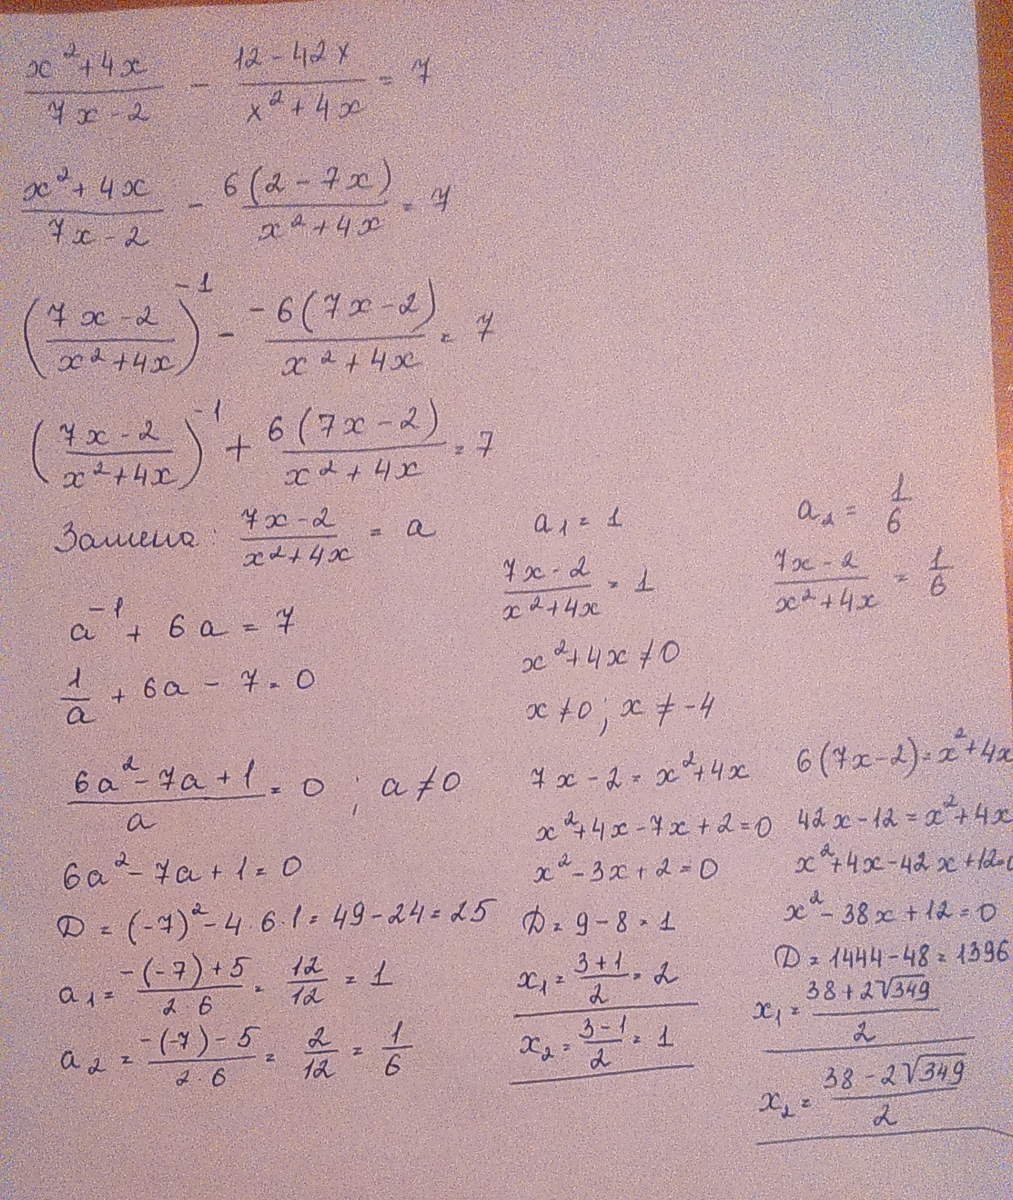 x²+4x / 7x-2 - 12-42x / x²+4x = 7
x²+4x / 7x-2 - 6(2-7x) / x²+4x = 7
(7x-2 / x²+4x)⁻¹ - -6(7x-2) / x²+4x = 7
(7x-2 / x²+4x)⁻¹ + 6(7x-2) / x²+4x = 7
Замена: 7x-2 / x²+4x = a
a⁻¹ + 6a = 7
1/a + 6a - 7 = 0
6a²-7a+1 / a = 0 ; a≠0
6a²-7a+1=0
D = (-7)²-4·6·1=49-24=25
a₁ = -(-7)+5 / 2·6 = 12/12 = 1
a₂ = -(-7)-5 / 2·6 = 2/12 = 1/6
a₁ = 1
7x-2 / x²+4x = 1
x²+4x≠0
x≠0; x≠-4
7x-2=x²+4x
x²+4x-7x+2=0
x²-3x+2=0
D=9-8=1
x₁ = 3+1 / 2 = 2
x₂ = 3-1 / 2 = 1
a₂ = 1/6
7x-2 / x²+4x = 1/6
6(7x-2)=x²+4x
42x-12=x²+4x
x²+4x-42x+12=0
x²-38x+12=0
D=1444-48=1396
x₁ = 38+2√349 / 2
x₂ = 38-2√349 / 2